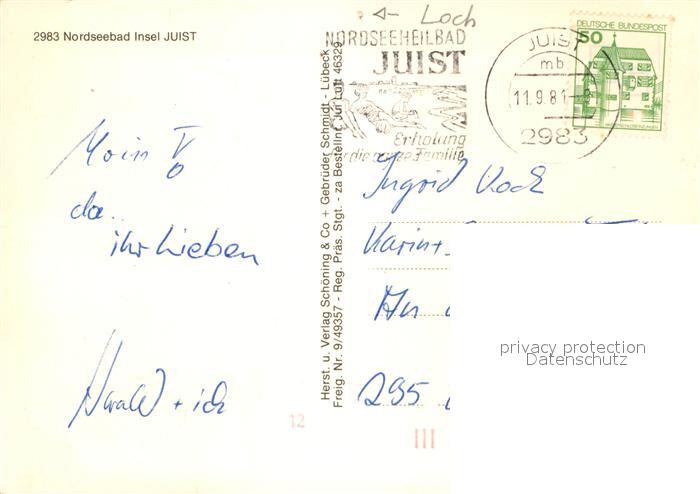 2983 Nordseebad Insel JUIST
Moin
da..
ihr Lieben
Harald + ich
12
Herst. u. Verlag Schöning & Co + Gebrüder Schmidt - Lübeck
Freig. Nr. 9/49357 - Reg. Präs. Stgt. - za Bestellnr. Jui Luft 46329
Loch
NORDSEEHEILBAD
JUIST
Erholung
für die ganze Familie
JUIST
mb
11.9.81
2983
DEUTSCHE BUNDESPOST
50
Ingrid Koch
Karin +
An
295
III
privacy protection
Datenschutz